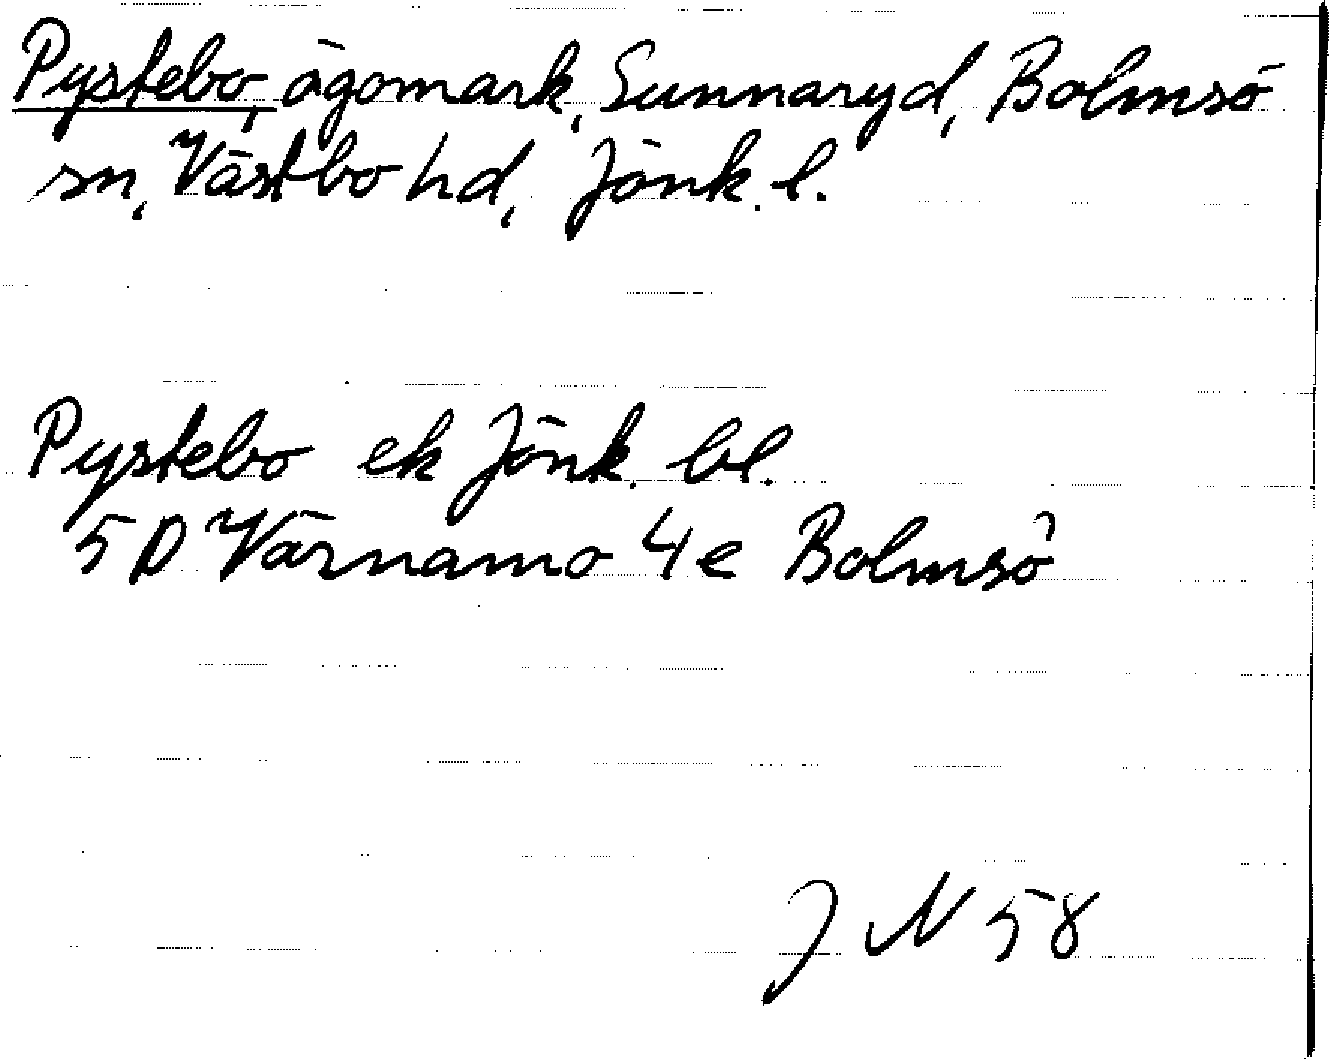 Pystebo, ägomark, Sunnaryd, Bolmsö
sn, Västbo hd, Jönk. l.
Pystebo ek Jönk. bl.
5D Värnamo 4e Bolmsö
J N 58